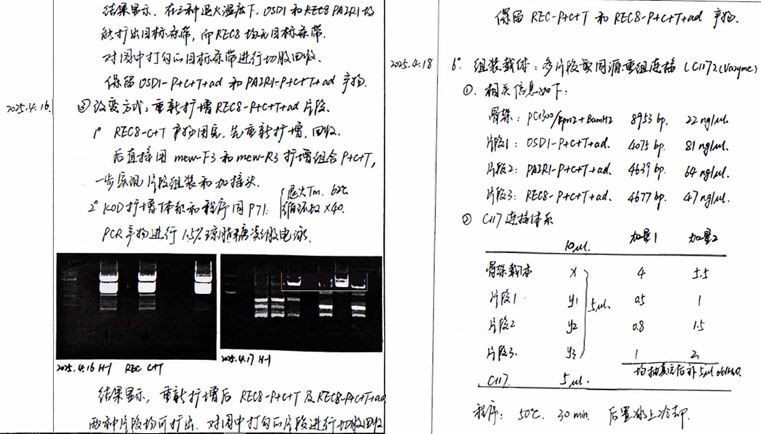 结果显示，在三种退火温度下，OSD1和REC8 PAIR1均
能扩出目标条带，而REC8均无目标条带。
对图中打勾的目标条带进行切胶回收。
保留OSD1-P+C+T+ad和PAIR1-P+C+T+ad产物。
2025.4.16.
③ 改变方式，重新扩增REC8-P+C+T+ad片段。
1° REC8-C+T 产物用完，先重新扩增、回收。
后直接用mew-F3和mew-R3扩增组合P+C+T，
一步实现片段组装和加接头。
2° KOD扩增体系和程序同P71：
退火Tm. 62℃
循环数×40.
PCR产物进行1.5%琼脂糖凝胶电泳.
2025.4.16 H-1 REC C+T
2025.4.17 H-1
结果显示，重新扩增后REC8-P+C+T及REC8-P+C+T+ad
两种片段均可扩出. 对图中打勾的片段进行切胶回收
保留REC-P+C+T和REC8-P+C+T+ad产物.
2025.4.18
6° 组装载体：多片段同源重组连接（C117 (Vazyme)
①. 相关信息如下：
骨架：PC1300/kpn2+BamH2 8953 bp. 22 ng/μl.
片段1：OSD1-P+C+T+ad. 4075 bp. 81 ng/μl.
片段2：PAIR1-P+C+T+ad. 4639 bp. 64 ng/μl.
片段3：REC8-P+C+T+ad. 4677 bp. 47 ng/μl.
② C117连接体系
10μl. 加量1 加量2
骨架载体 X 4 5.5
片段1 y1 5μl. 0.5 1
片段2 y2 0.8 1.5
片段3. y3 1 2
C117 5μl.
程序：50℃. 30 min. 后置冰上冷却.